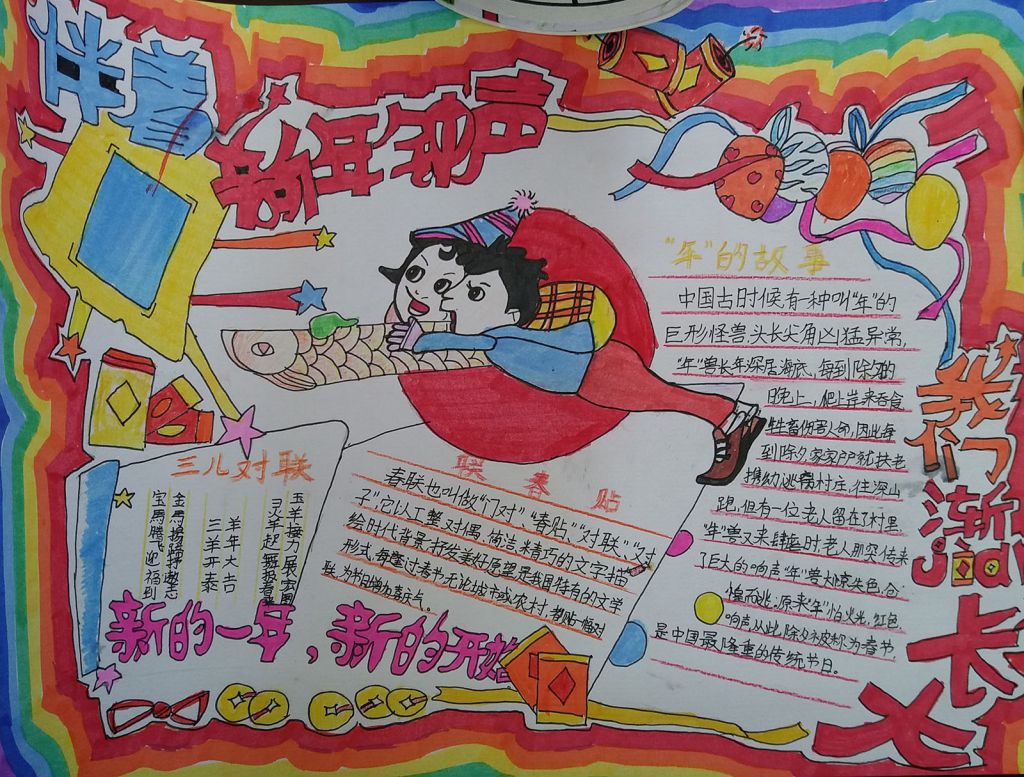 伴着
新年钟声
"年"的故事
中国古时候有一种叫"年"的
巨形怪兽头长尖角凶猛异常,
"年"兽长年深居海底,每到除夕的
晚上,爬上岸来吞食
牲畜伤害人命,因此每
到除夕家家户户就扶老
携幼逃离村庄,往深山
跑,但有一位老人留在了村里,
"年"兽又来肆虐时老人那突传来
了巨大的响声"年"兽大惊失色,仓
惶而逃:原来"年"怕火光,红色
响声从此,除夕被称为春节,
是中国最隆重的传统节日。
我们
渐
jiàn
长
大
三儿对联
玉羊接力展宏图
灵羊起舞报春
羊年大吉
三羊开泰
金馬揚蹄
宝馬腾飞迎福到
联春贴
春联也叫做"门对"、"春贴"、"对联"、"对
子",它以工整对偶、简洁、精巧的文字描
绘时代背景,抒发美好愿望是我国特有的文学
形式,每逢过春节无论城市或农村,都贴一幅对
联,为节日增加喜乐点。
新的一年,新的开始